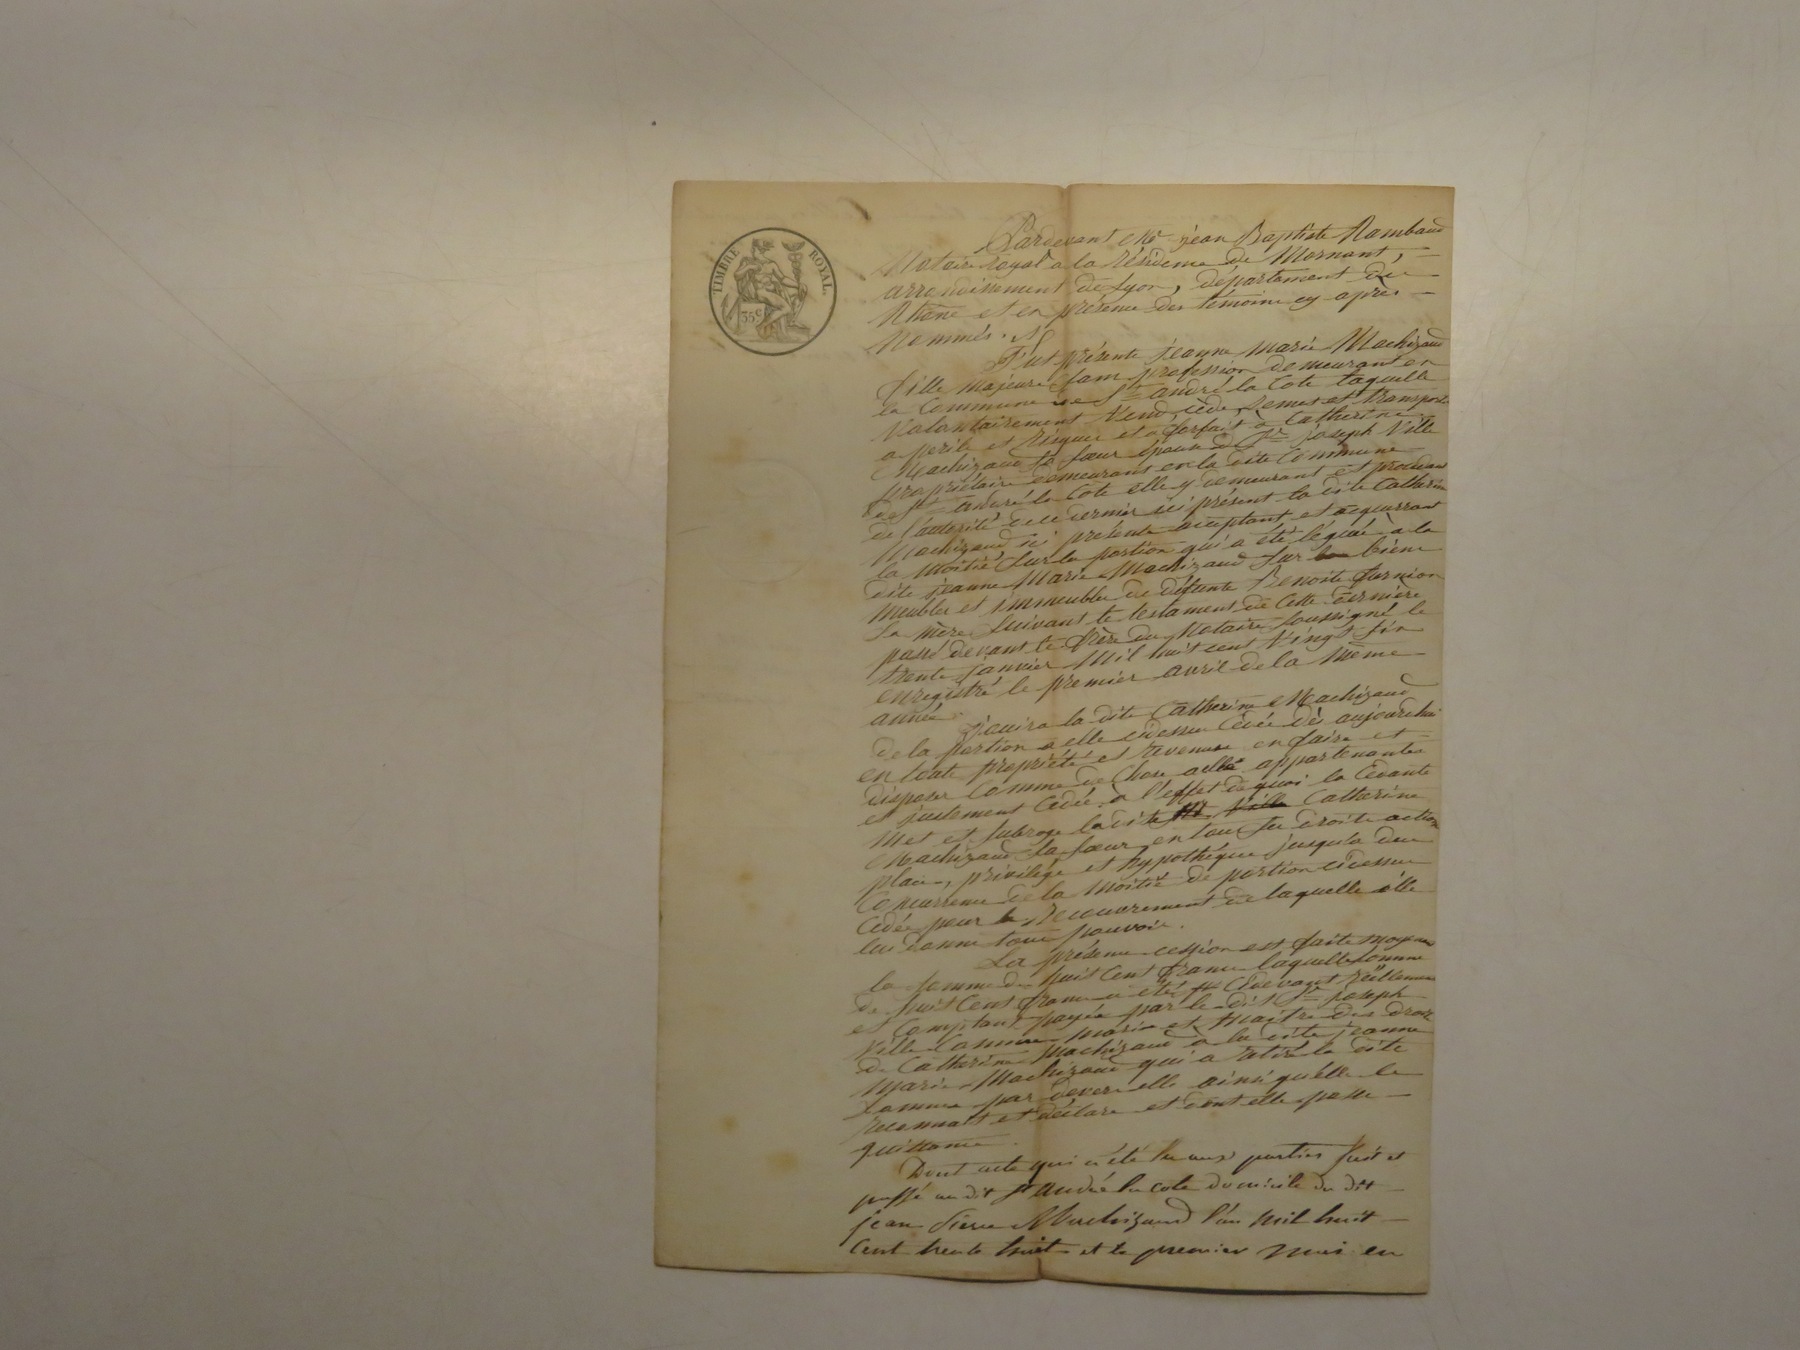 TIMBRE ROYAL.
35 c
Pardevant Me jean Baptiste Rambaud
Notaire royal a la résidence de Mornant,
arrondissement de Lyon, département du
Rhône et en présence des témoins cy après
Nommés.
Fut présente jeanne marie Machizaud
fille majeure sans profession demeurant en
la Commune de St andré la Cote laquelle
Volontairement Vend, cède, remet et transporte
a perils et risques et a forfait a Catherine
Machizaud sa sœur épouse de Sr joseph Ville
propriétaire demeurans en la dite Commune
de St andré la Cote elle y demeurant et procédant
de l'autorité de ce dernier ici présent la dite Catherine
Machizaud ici présente acceptant et acquerrant
la moitié sur la portion qui a été léguée a la
dite jeanne Marie Machizaud sur les biens
meubles et immeubles de défunte Benoite furnion
sa mère suivant le testament de cette dernière
passé devant le frère du Notaire soussigné le
trente janvier Mil huit cent Vingt six
enregistré le premier avril de la même
année.
Jouira la dite Catherine Machizaud
de la portion a elle cidessus cédée dès aujourd'hui
en toute propriété et revenus en faire et
disposer Comme de Chose a elle appartenante
et justement cédée a l'effet de quoi la Cédante
Met et subroge la dite Ville Catherine
Machizaud sa sœur en tous ses droits action
place, privilége et hypothèque jusqu'a due
Concurrence de la moitié de portion cidessus
Cédée pour le recouvrement de laquelle elle
lui donne tout pouvoir.
La présente cession est faite moyenn
la somme de huit Cent francs laquelle somme
de huit Cent francs a été Cidevant réellement
et Comptant payée par le dit Sr joseph
Ville Comme mari et Maître des droits
de Catherine Machizaud a la dite jeanne
Marie Machizaud qui a retiré la dite
somme par devers elle ainsi qu'elle le
reconnait et déclare et dont elle passe
quittance.
Dont acte qui a été lu aux parties fait et
passé au dit St André la cote domicile du dit
jean Pierre Machizaud l'an Mil huit
Cent trente huit et le premier mai en